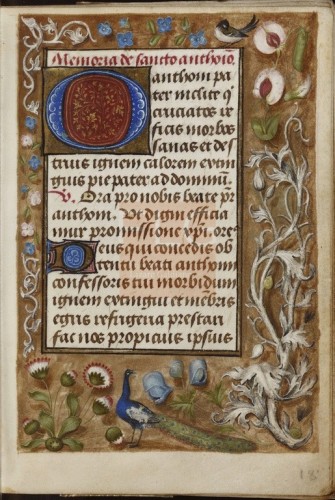 Memoria de sancto anthoio.
O anthom pa
ter inclite q̇
cruciatos re
ficis morbos
sanas et des
truis ignem calorem extin
guis pie pater ad dominũ.
V. Ora pro nobis beate pr̄
anthom. Ut digni efficia
mur promissione xpi. ore
Deus qui concedis ob
tentu beati anthonij
confessoris tui morbidum
ignem extingui et mēbris
egris refrigeria prestari
fac nos propiciis ipsius
18